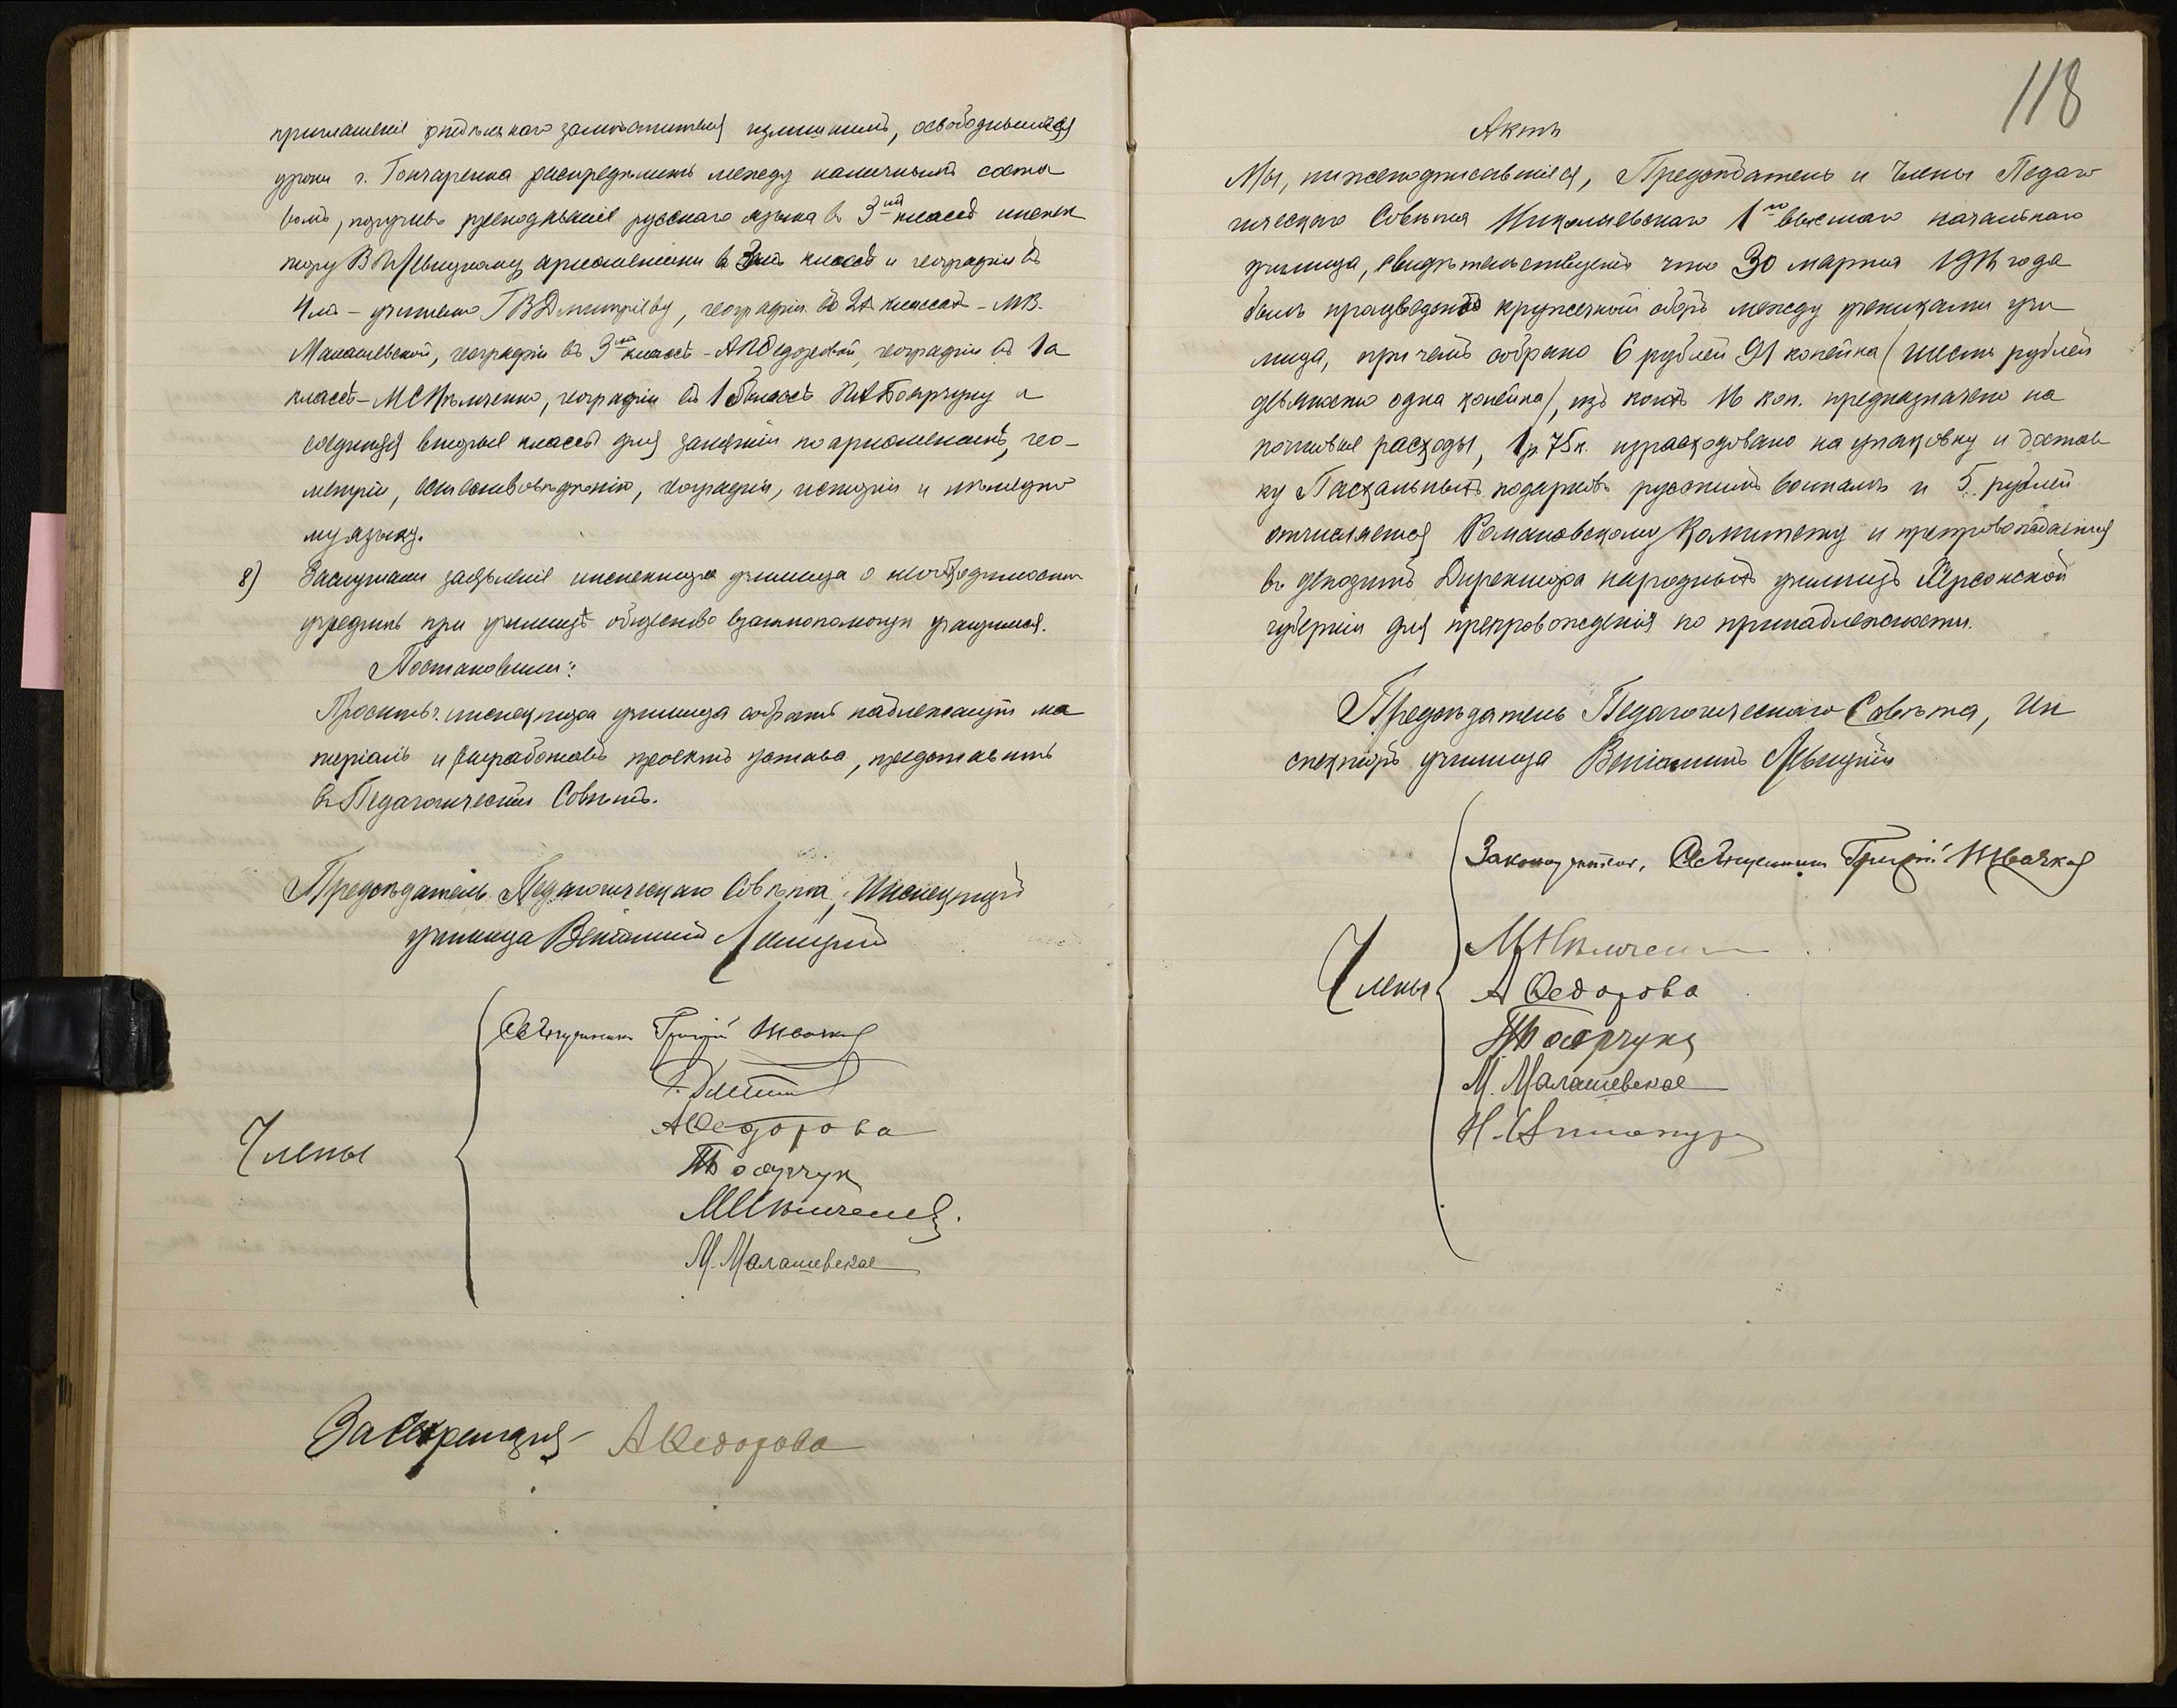 приглашеніе отдѣльнаго замѣстителя излишнимъ, освободившіеся
уроки г. Гончаренка распредѣлить между наличнымъ соста
вомъ, поручивъ преподованіе русскаго языка въ 3мъ классѣ инспек
тору В Левицкому ариѳметики въ 3мъ классѣ и географіи въ
4мъ – учителю Г В Дмитріеву, географіи во 2А классѣ – М В.
Малашевской, географіи въ 3мъ классѣ – А Ѳедоровой, географіи въ 1а
классѣ – М С Ильченко, географіи въ 1 б классѣ Боярчуку и
соединяя вторые классы для занятій по ариѳметикѣ, гео-
метріи, естествовѣдѣнію, географіи, исторіи и нѣмецко
му языку.
8) Заслушали заявленіе инспектора училища о необходимости
учредить при училищѣ общество взаимопомощи учащимся.
Постановили:
Просить г. инспектора училища собрать надлежащій ма
теріалъ и разработавъ проектъ устава, представить
въ Педагогическій Совѣтъ.
Предсѣдатель Педагогическаго Совѣта, Инспекторъ
училища Веніаминъ Левицкій
Священникъ Григорій
А Ѳедорова
Боярчук
Члены
М Ильченко
М. Малашевская
За секретаря – А Ѳедорова
118
Актъ
Мы, нижеподписавшіеся, Предсѣдатель и Члены Педаго
гическаго Совѣта Николаевскаго 1го высшаго начальнаго
училища, свидѣтельствуемъ что 30 марта года
былъ произведенъ кружечный сборъ между учениками учи
лища, при чемъ собрано 6 рублей 91 копейка (шесть рублей
девяносто одна копейка), изъ коихъ 16 коп. предназначено на
почтовые расходы, 1 р. 75 к. израсходовано на упаковку и достав
ку Пасхальныхъ подарковъ русскимъ воинамъ и 5 рублей
отчисляется Романовскому Комитету и препровождается
въ депозитъ Директора народныхъ училищъ Херсонской
губерніи для препровожденія по принадлежности.
Предсѣдатель Педагогическаго Совѣта, Ин
спекторъ училища Веніаминъ Левицкій
Законоучитель, Священникъ Григорій
М Ильченко
Члены А Ѳедорова
Боярчукъ
М. Малашевская
Н.